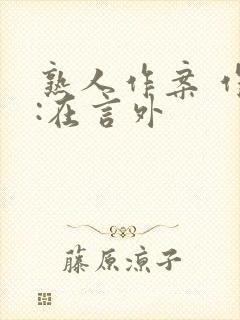 熟人作案 作
:在言外
藤原凉子